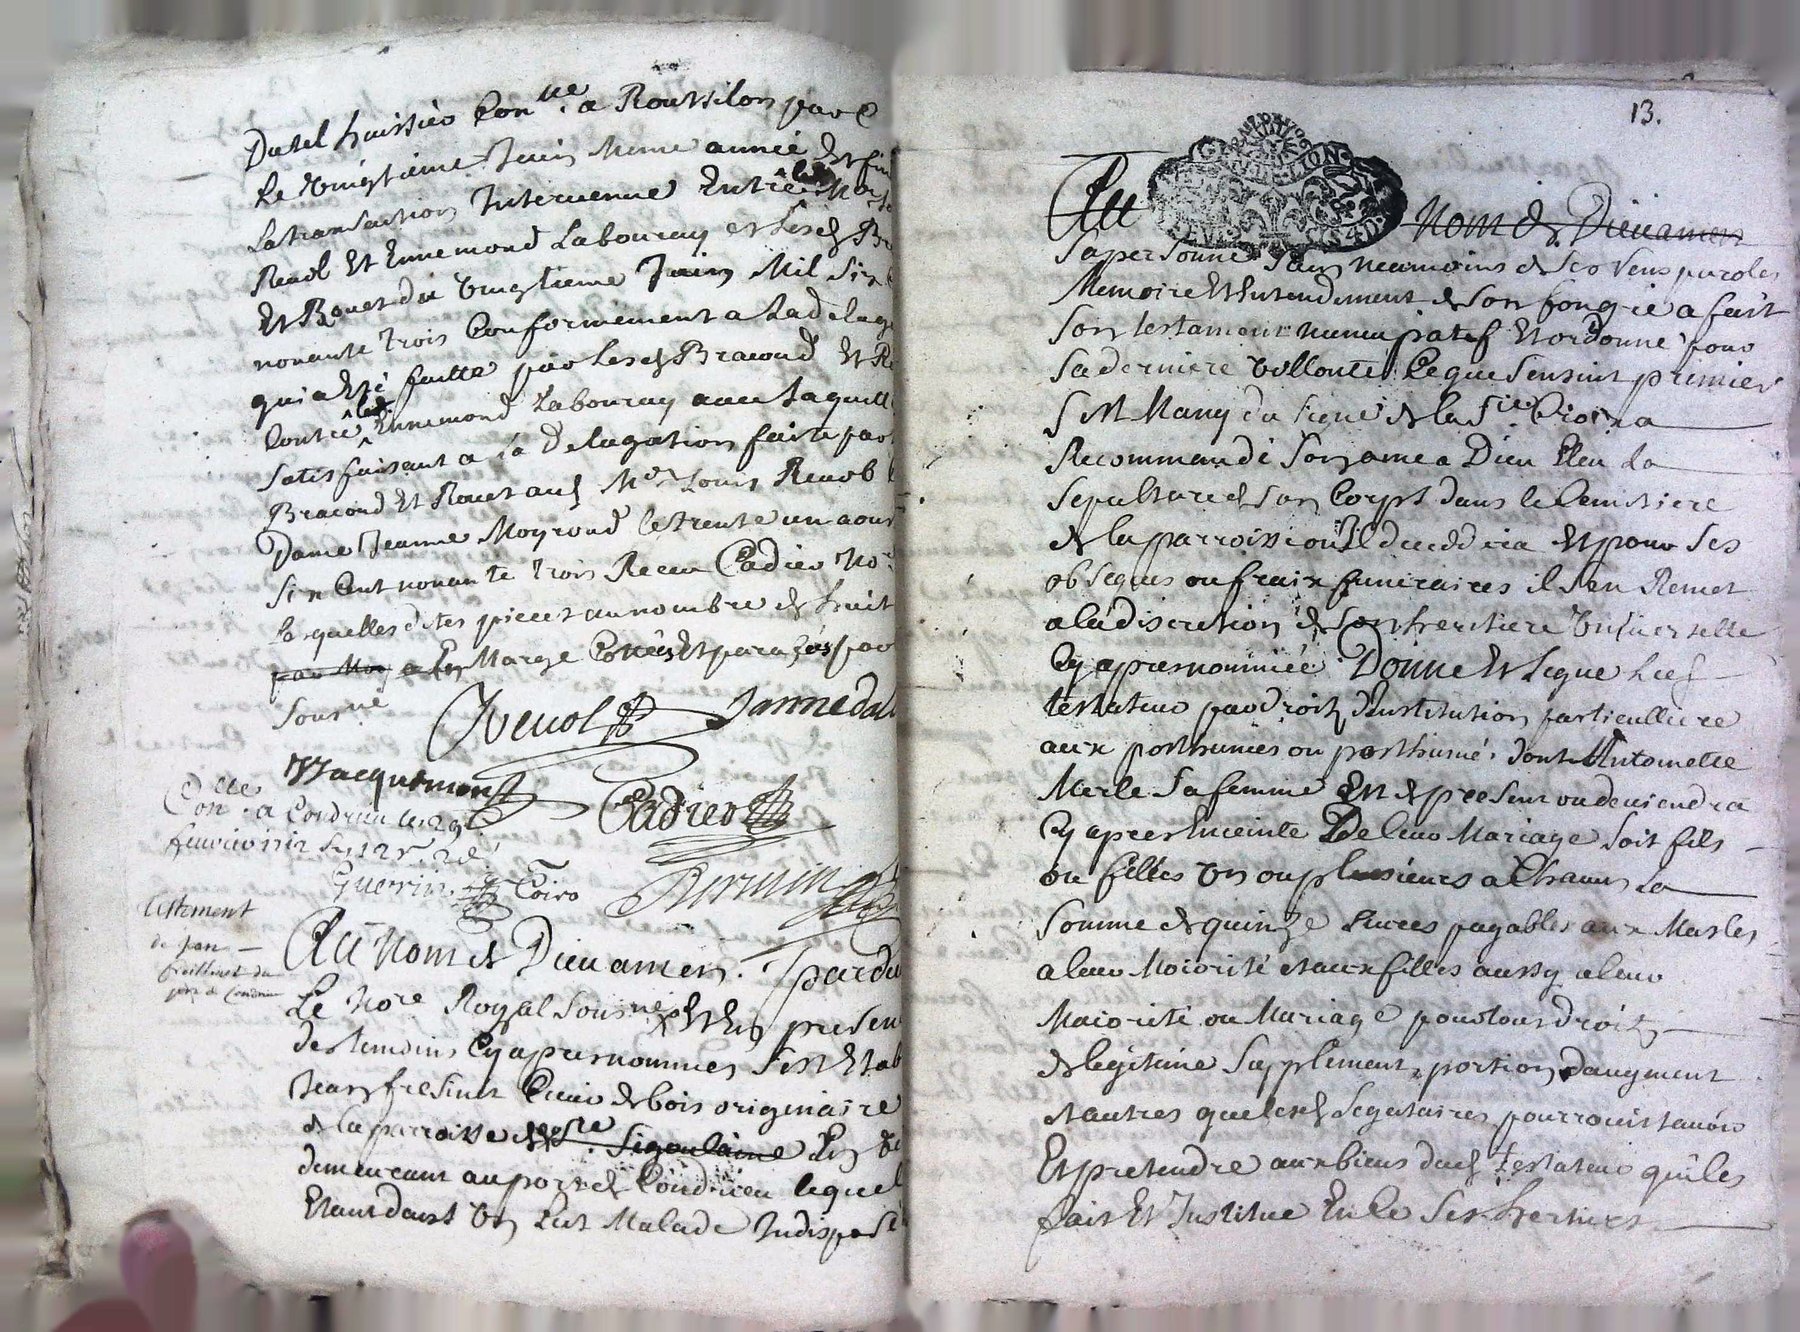 Dutel huissier Con.lle a Roussilon par
Le Vingtieme Juin Meme année Et fin
La transaction Intervenue Entre les
Revol Et Ennemond Labouray et Lesd
Et Rouet du Vingtieme Juin Mil Six
nonante trois Conformement a La delega
qui a Eté faitte par Lesd Bracoud Et
Contre led Ennemond Labouray avec Laquelle
satisfaisant a la Delagation faite par
Bracoud Et Rouet aud Mr Louis Revol
Dame Jeanne Moyroud le trente un aout
Six Cent nonante trois Receu Cadier No.re
Lesquelles dites pieces au nombre de huit
par Moy En Marge Cottées Et paraphées par
Sousné
Revol Janne dal
Jacquemont
Cadier
Con.lle a Condrieu le 29
Guerrin
Perrin
testement
de Jean
fraissinet du
port de Condrieu
Au Nom de Dieu amen. Pardev
Le No.re Royal Sousné Et En presen
des temoins Cy apres nommes s'est Etab
Jean fresinet originaire
de la parroisse de Ste Sigoulaine En
demeurant au port de Condrieu lequel
Etant dans Un Lit Malade Indisposé
13.
GENERALITE DE LYON
Au Nom de Dieu amen
Sa personne Sain neanmoins de Ses Sens paroles
Memoire Et Entendement de Son bon gré a fait
Son testament nuncupatif Et ordonné pour
Sa derniere Vollonté Ce que Sensuit premier
S'est Muny du Signe de la Ste Croix a
Recommandé Son ame a Dieu Eleu La
Sepulture de Son Corps dans le Cemitiere
de la parroisse ou Il decedera Et pour Ses
obseques ou fraix funeraires il s'en Remet
a la discretion de Son heretiere Universelle
Cy apres nommée. Donne Et Legue Led
testateur par droit d'Institution particulliere
aux posthumes ou posthume dont Antoinette
Merle Sa femme Est de present ou deviendra
Cy apres Enceinte De leur Mariage Soit fils
ou filles Un ou plusieurs a Chacun La
Somme de quinze Livres payables aux Masles
a leur Maiorité et aux filles aussy a leur
Maiorité ou Mariage pour tous droits
de legitime Supplement, portion d'augment
et autres que lesd Legataires pourroient avoir
Et pretendre aux biens dud testateur qu'il les
fait Et Institue En ce Ses heritiers